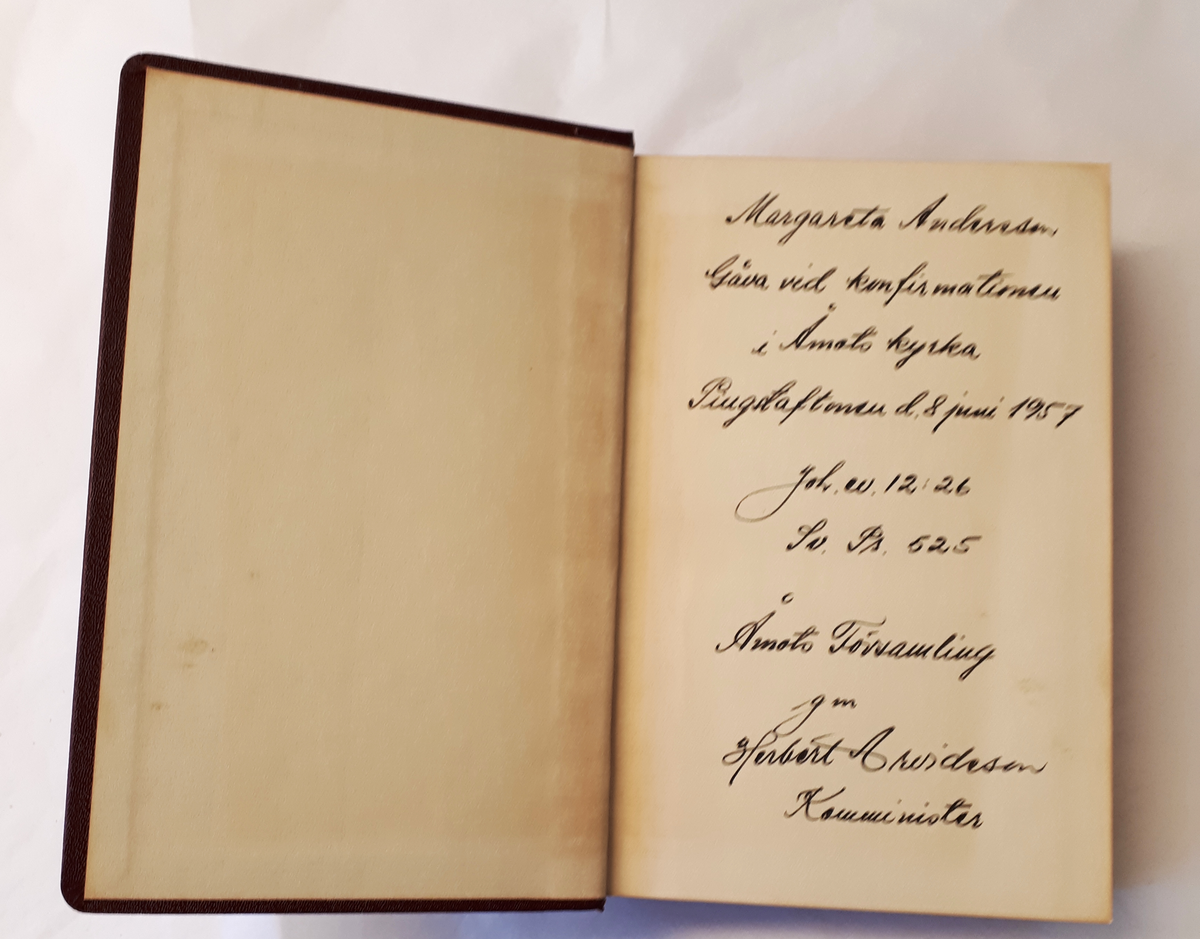 Margareta Andersson
Gåva vid konfirmationen
i Åmots kyrka
Pingstaftonen d. 8 juni 1957
Joh. ev. 12:26
Sv. Ps. 525
Åmots Församling
gm
Herbert Arvidsson
Komminister